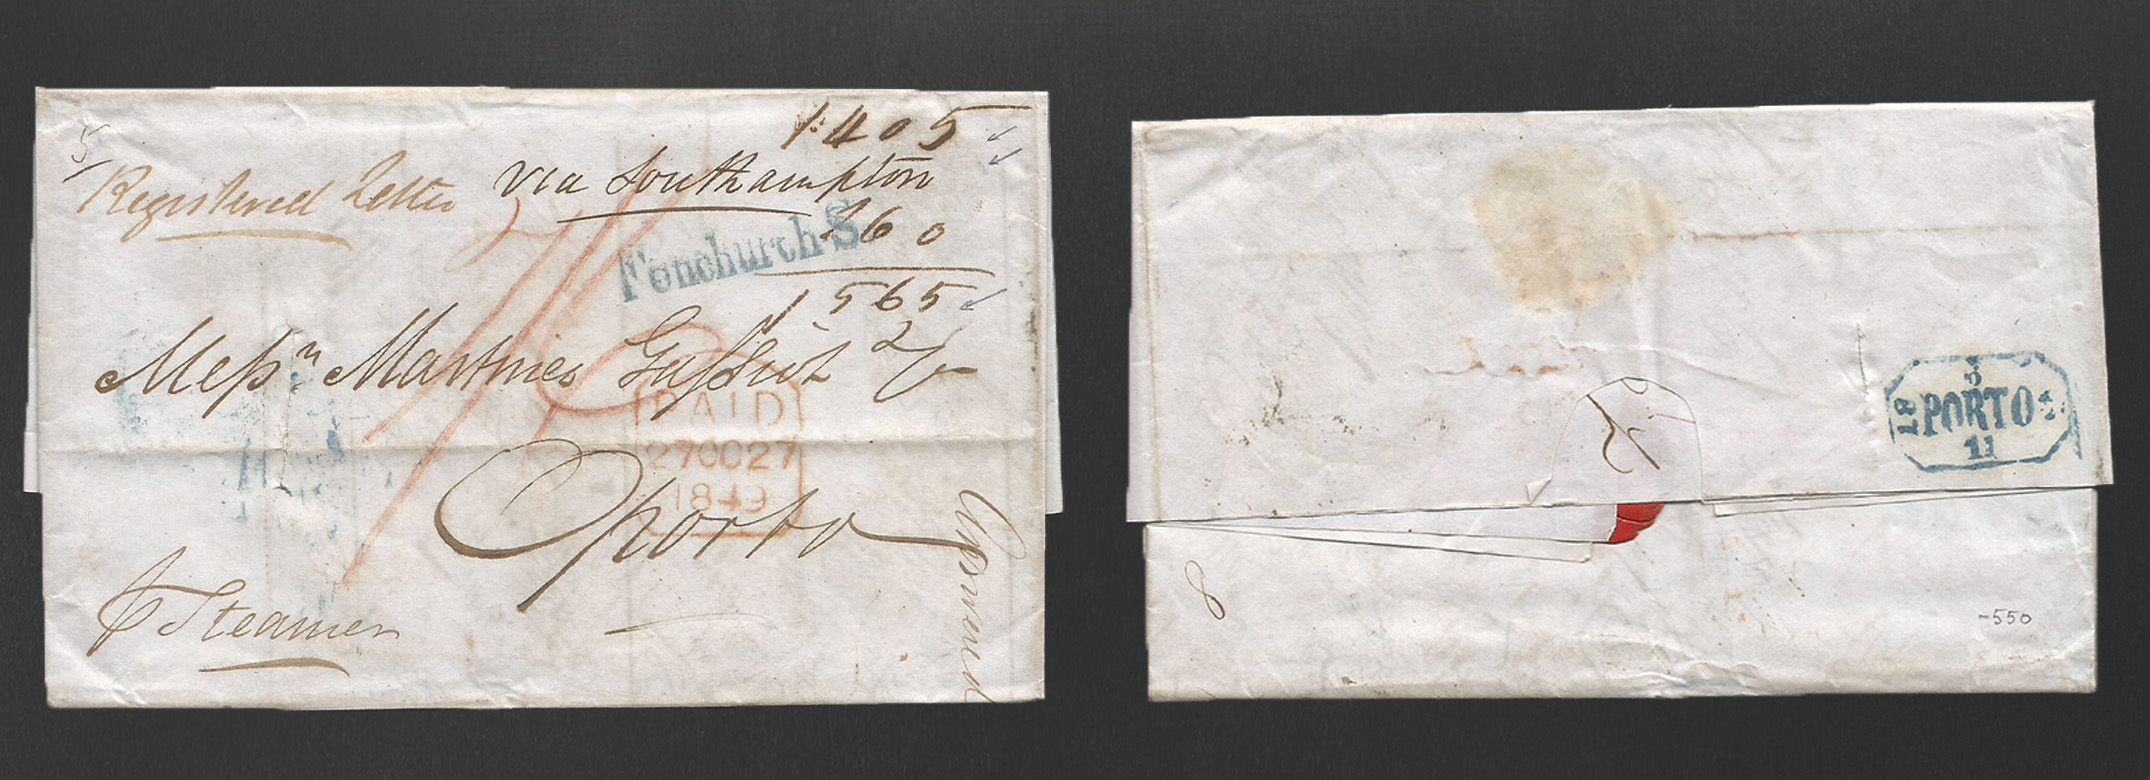 1:405
5/
Registered Letter via Southampton
160
Fenchurch S.
1565
Messrs Martinez Gassiot & Co
PAID
27OC27
1849
Oporto
p Steamer
3
18 PORTO 4
11
8
-550